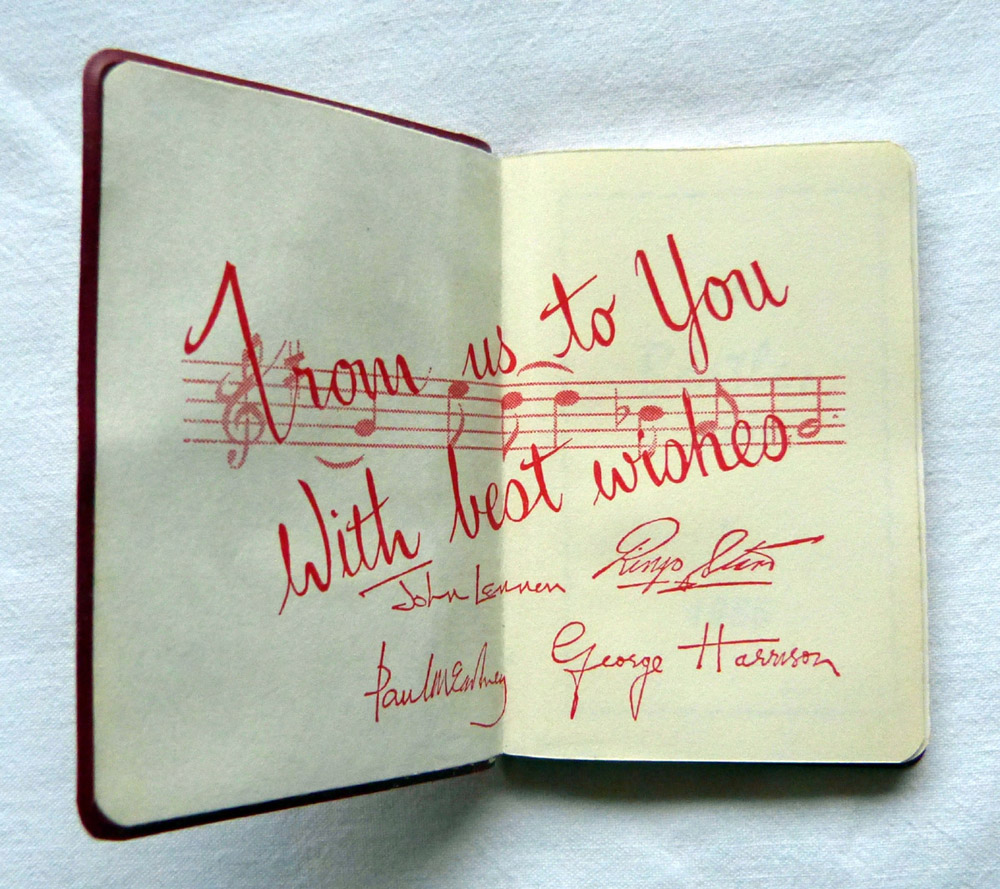 From us to You
With best wishes
John Lennon
Ringo Starr
Paul McCartney
George Harrison